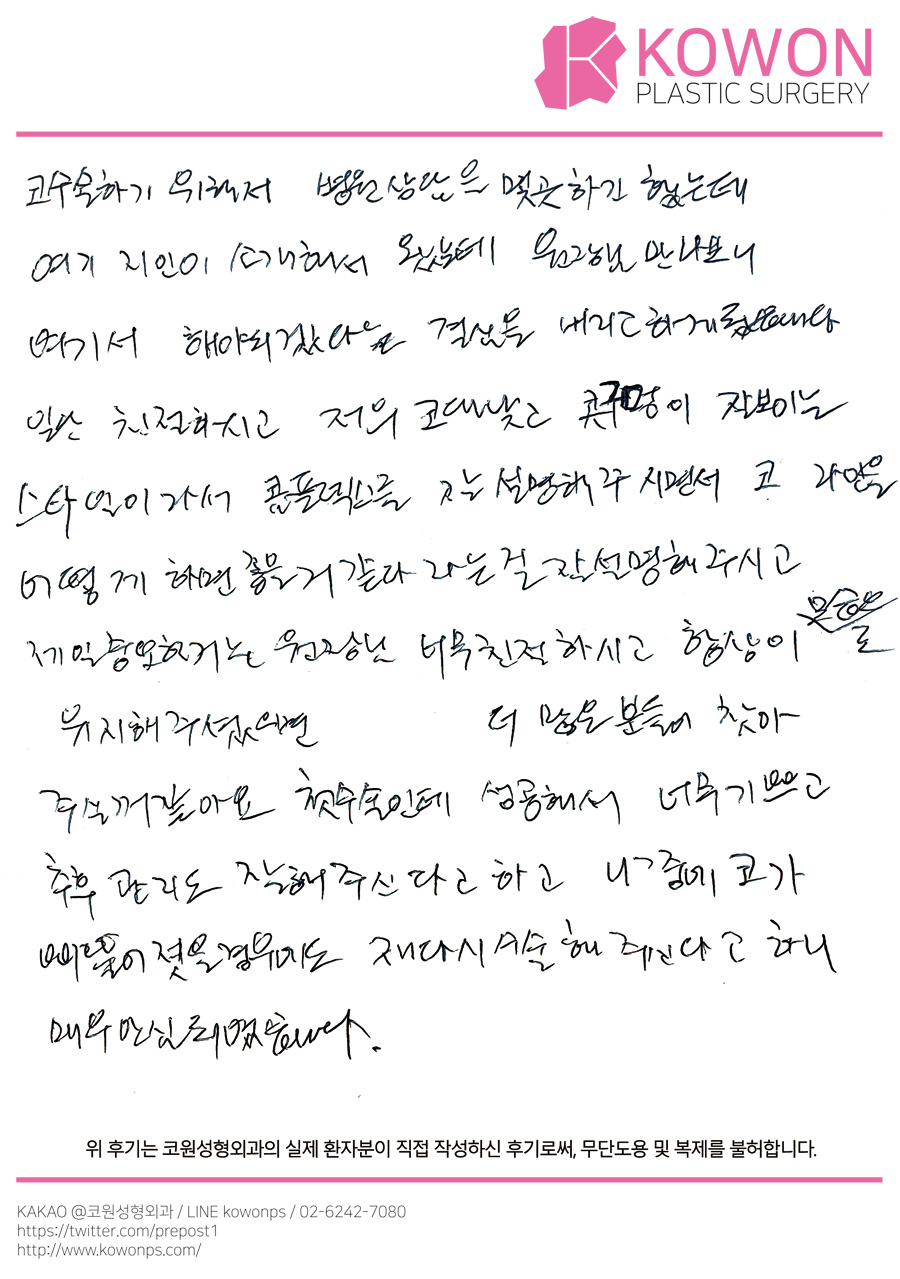 KOWON
PLASTIC SURGERY
코수술하기 위해서 병원상담은 몇곳하긴 했는데
여기 지인이 소개해서 왔는데 원장님 만나보니
여기서 해야되겠다는 결심을 내리고 하게
일단 친절하시고 저의 코대낮고 콧구멍이 잘보이는
스타일이라서 콤플렉스를 잘 설명해 주시면서 코 라인을
어떻게 하면 좋을거 같다 라는걸 잘설명해 주시고
제일중요한거는 원장님 너무친절하시고 항상이
유지해주셨으면 더 많은 분들이 찾아
주실꺼같아요 첫수술인데 성공해서 너무기쁘고
추후 관리도 잘해주신다고 하고 나중에 코가
삐뚤어졌을경우에도 재다시시술해 주신다고 하니
매우안심되었습니다.
위 후기는 코원성형외과의 실제 환자분이 직접 작성하신 후기로써, 무단도용 및 복제를 불허합니다.
KAKAO @코원성형외과 / LINE kowonps / 02-6242-7080
https://twitter.com/prepost1
http://www.kowonps.com/